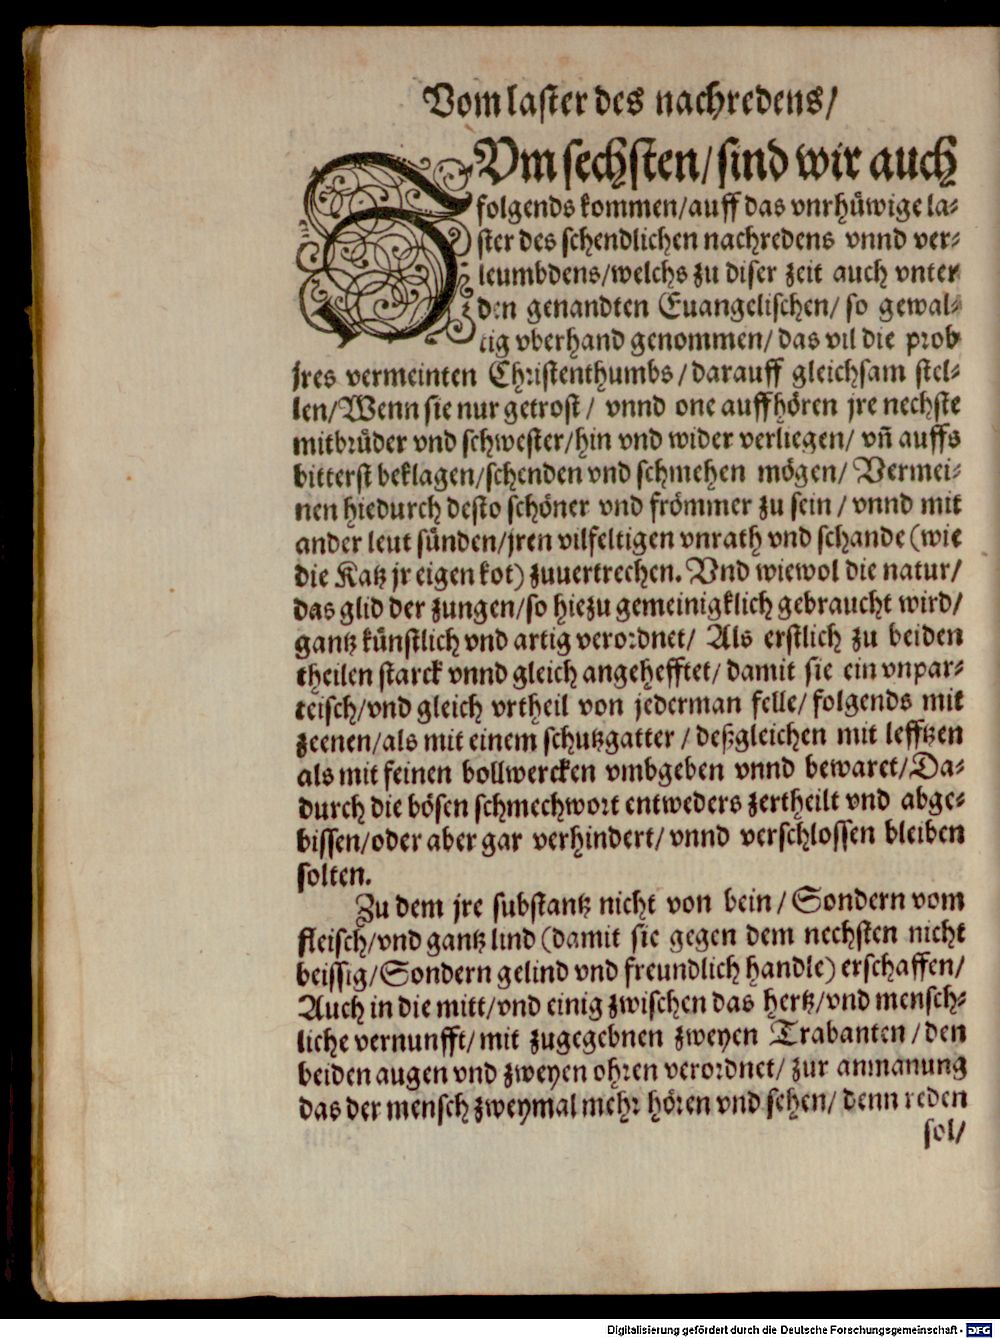 Vom laster des nachredens/
ZVm sechsten/ sind wir auch
folgends kommen/auff das vnrhüwige la-
ster des schendlichen nachredens vnnd ver-
leumbdens/welchs zu diser zeit auch vnter
den genandten Euangelischen/ so gewal-
tig vberhand genommen/ das vil die prob
jres vermeinten Christenthumbs/ darauff gleichsam stel-
len/Wenn sie nur getrost/ vnnd one auffhören jre nechste
mitbrüder vnd schwester/hin vnd wider verliegen/ vñ auffs
bitterst beklagen/schenden vnd schmehen mögen/ Vermei-
nen hiedurch desto schöner vnd frömmer zu sein/ vnnd mit
ander leut sünden/jren vilfeltigen vnrath vnd schande (wie
die Katz jr eigen kot) zuuertrechen. Vnd wiewol die natur/
das glid der zungen/so hiezu gemeinigklich gebraucht wird/
gantz künstlich vnd artig verordnet/ Als erstlich zu beiden
theilen starck vnnd gleich angehefftet/ damit sie ein vnpar-
teisch/vnd gleich vrtheil von jederman felle/ folgends mit
zeenen/als mit einem schutzgatter/ deßgleichen mit lefftzen
als mit feinen bollwercken vmbgeben vnnd bewaret/Da-
durch die bösen schmechwort entweders zertheilt vnd abge-
bissen/oder aber gar verhindert/ vnnd verschlossen bleiben
solten.
Zu dem jre substantz nicht von bein/ Sondern vom
fleisch/vnd gantz lind (damit sie gegen dem nechsten nicht
beissig/Sondern gelind vnd freundlich handle) erschaffen/
Auch in die mitt/vnd einig zwischen das hertz/vnd mensch-
liche vernunfft/ mit zugegebnen zweyen Trabanten/ den
beiden augen vnd zweyen ohren verordnet/ zur anmanung
das der mensch zweymal mehr hören vnd sehen/ denn reden
sol/
Digitalisierung gefördert durch die Deutsche Forschungsgemeinschaft - DFG